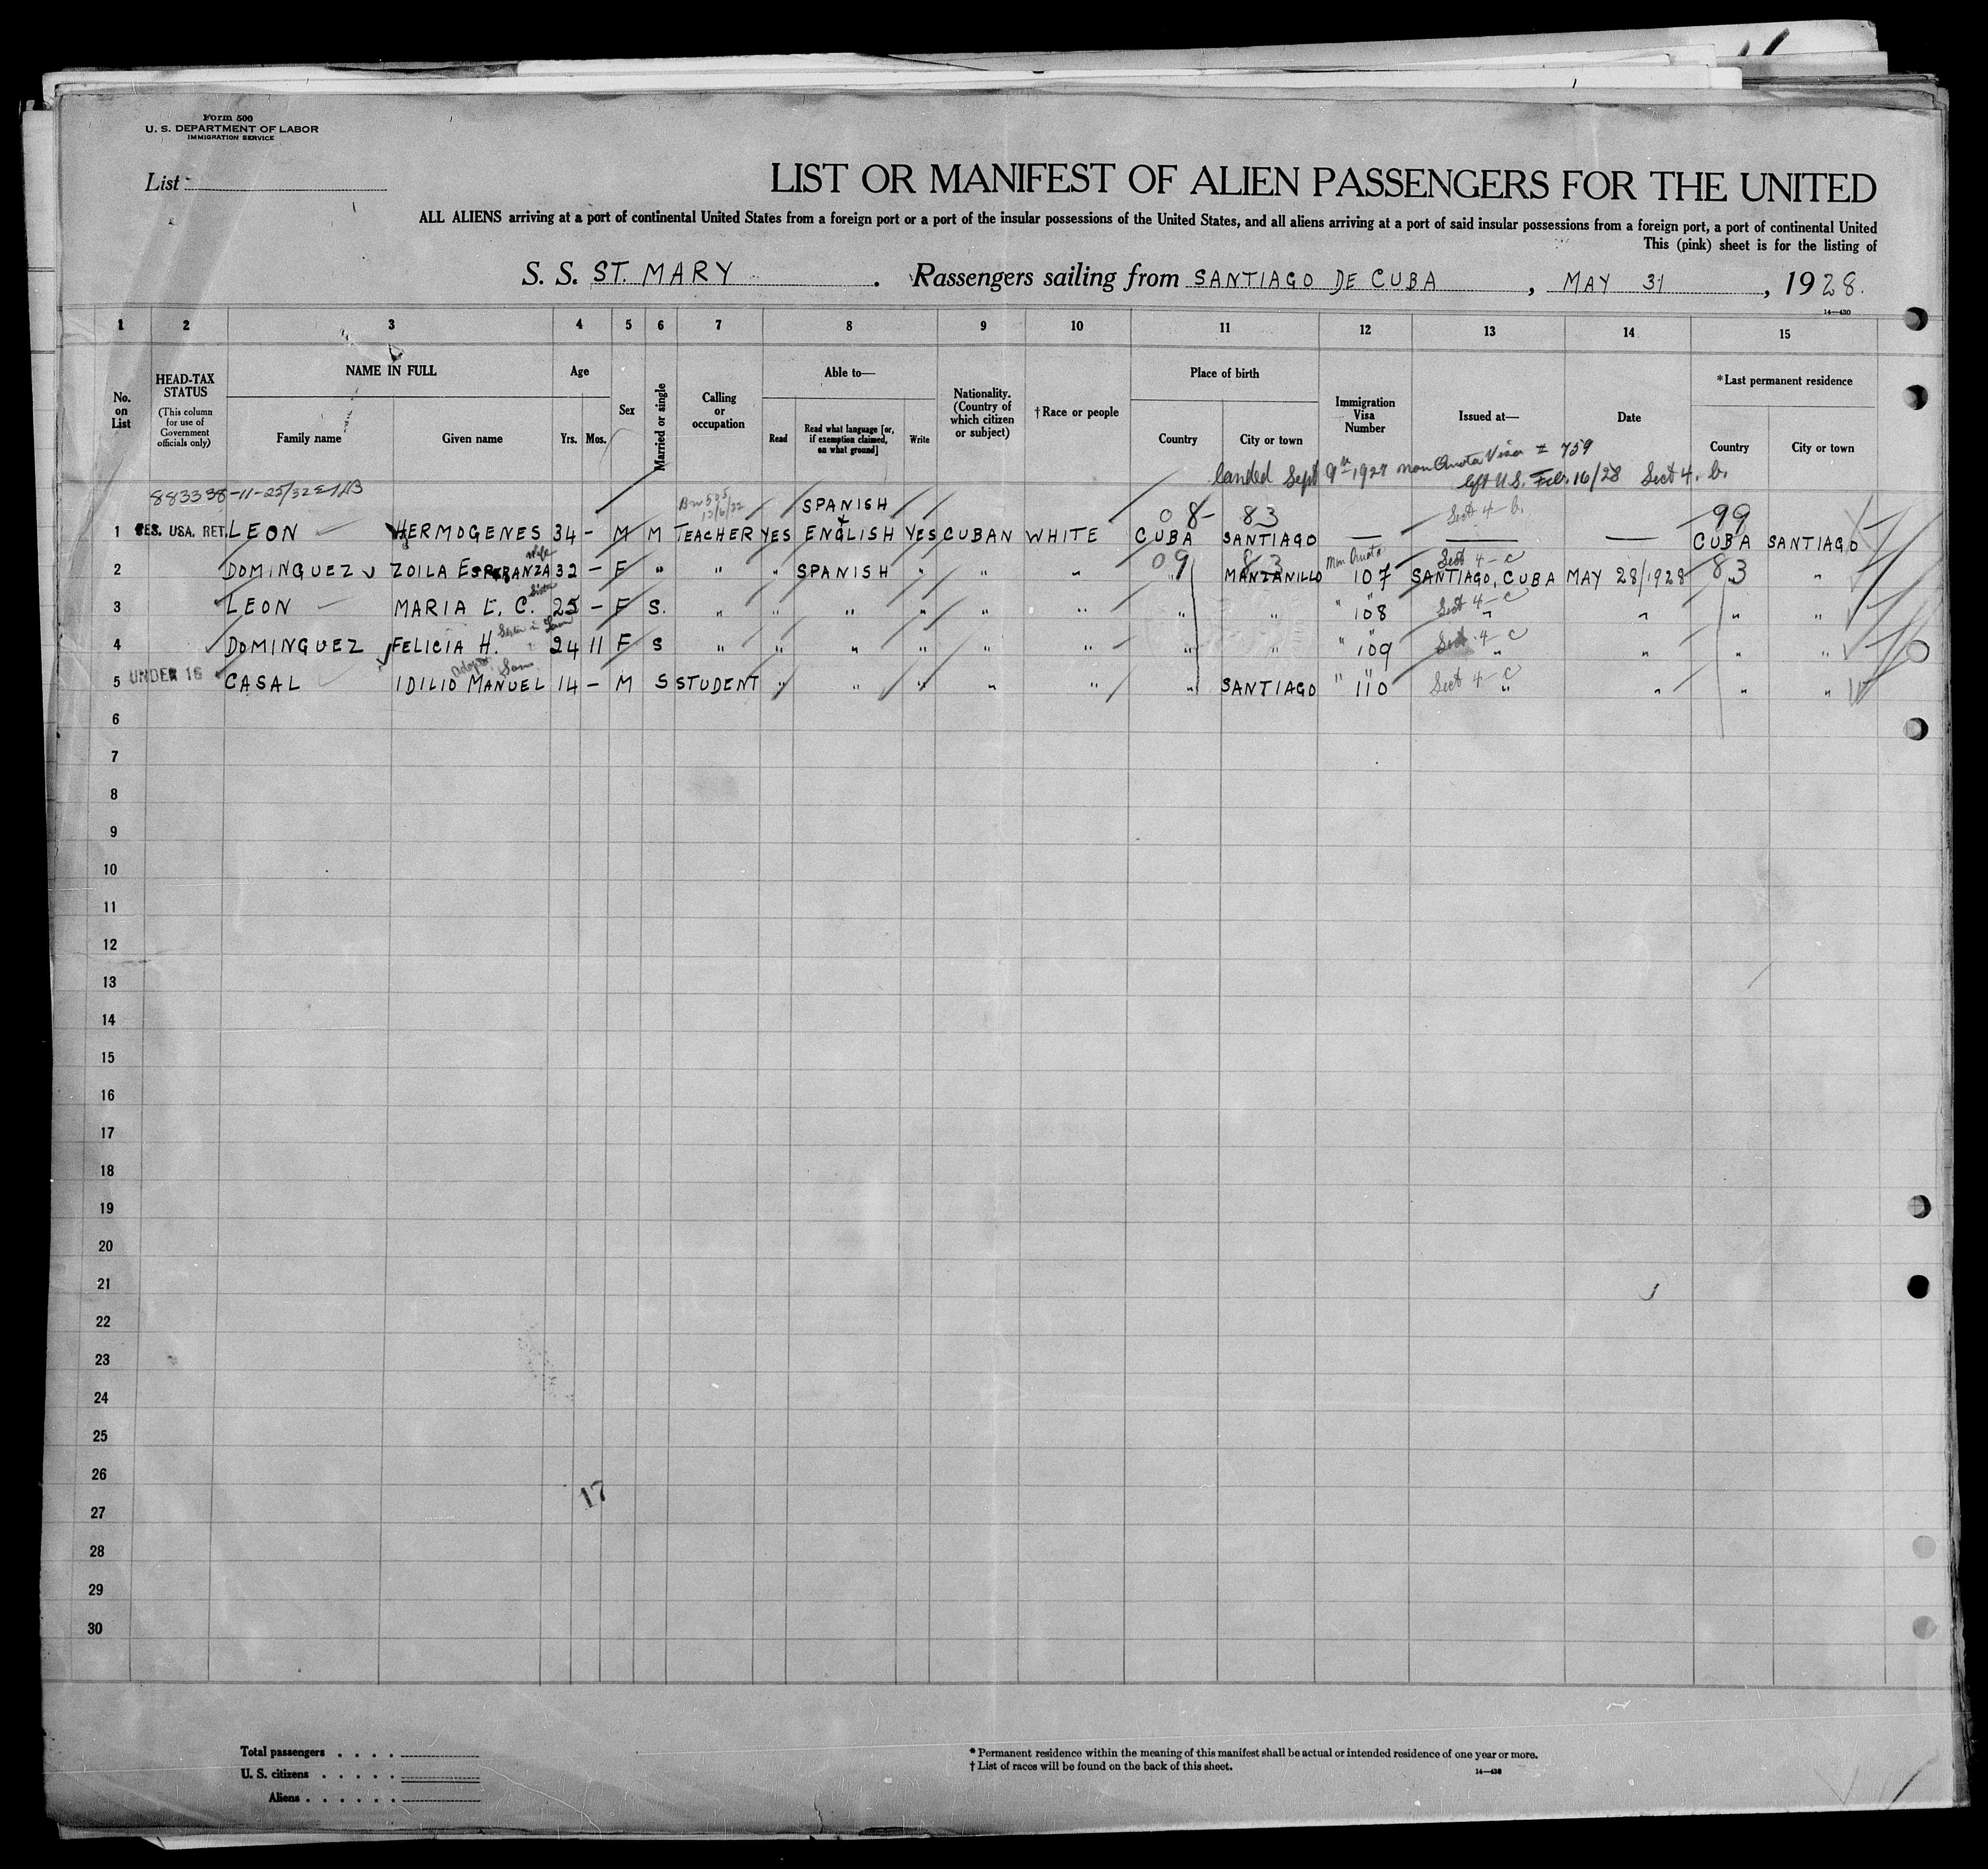 Form 500
U. S. DEPARTMENT OF LABOR
IMMIGRATION SERVICE
List
LIST OR MANIFEST OF ALIEN PASSENGERS FOR THE UNITED
ALL ALIENS arriving at a port of continental United States from a foreign port or a port of the insular possessions of the United States, and all aliens arriving at a port of said insular possessions from a foreign port, a port of continental United
This (pink) sheet is for the listing of
S. S. ST. MARY . Passengers sailing from SANTIAGO DE CUBA , MAY 31 , 1928.
14—430
1 2 3 4 5 6 7 8 9 10 11 12 13 14 15
No. on List
HEAD-TAX STATUS
(This column for use of Government officials only)
NAME IN FULL
Family name Given name
Age
Yrs. Mos.
Sex
Married or single
Calling or occupation
Able to—
Read Read what language [or, if exemption claimed, on what ground] Write
Nationality. (Country of which citizen or subject)
† Race or people
Place of birth
Country City or town
Immigration Visa Number
Issued at—
Date
* Last permanent residence
Country City or town
landed Sept 9th 1927 non Quota Visa # 759
left U.S. Feb. 16/28 Sect 4. b.
SPANISH
08- 83 Sect 4-b. 99
1 RES. USA. RET. LEON HERMOGENES 34 - M M TEACHER YES + ENGLISH YES CUBAN WHITE CUBA SANTIAGO — — — CUBA SANTIAGO
wife
09 83 Non Quota Sect 4-c 83
2 DOMINGUEZ ZOILA ESPERANZA 32 - F " " " SPANISH " " " " MANZANILLO 107 SANTIAGO, CUBA MAY 28/1928 " "
Sister
Sect 4-c
3 LEON MARIA E. C. 25 - F S. " " " " " " " " " 108 " " " "
Sister in Law
Sect 4-c
4 DOMINGUEZ FELICIA H. 24 11 F S " " " " " " " " " 109 " " " "
adopted Son
5 UNDER 16 CASAL IDILIO MANUEL 14 - M S STUDENT " " " " " " SANTIAGO " 110 Sect 4-c " " " "
6
7
8
9
10
11
12
13
14
15
16
17
18
19
20
21
22
23
24
25
26
17
27
28
29
30
Total passengers . . . .
U. S. citizens . . . . .
Aliens . . . . . .
* Permanent residence within the meaning of this manifest shall be actual or intended residence of one year or more.
† List of races will be found on the back of this sheet.
14—430